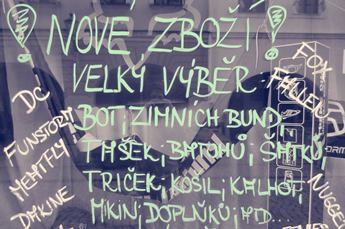 NOVÉ ZBOŽÍ!
VELKÝ VÝBĚR
BOT, ZIMNÍCH BUND,
TAŠEK, BATOHŮ, ŠÁTKŮ,
TRIČEK, KOŠIL, KALHOT,
MIKIN, DOPLŇKŮ, ATD...
DC
FUNSTORM
MEATFLY
DAKINE
FOX
FALLEN
NUGGET